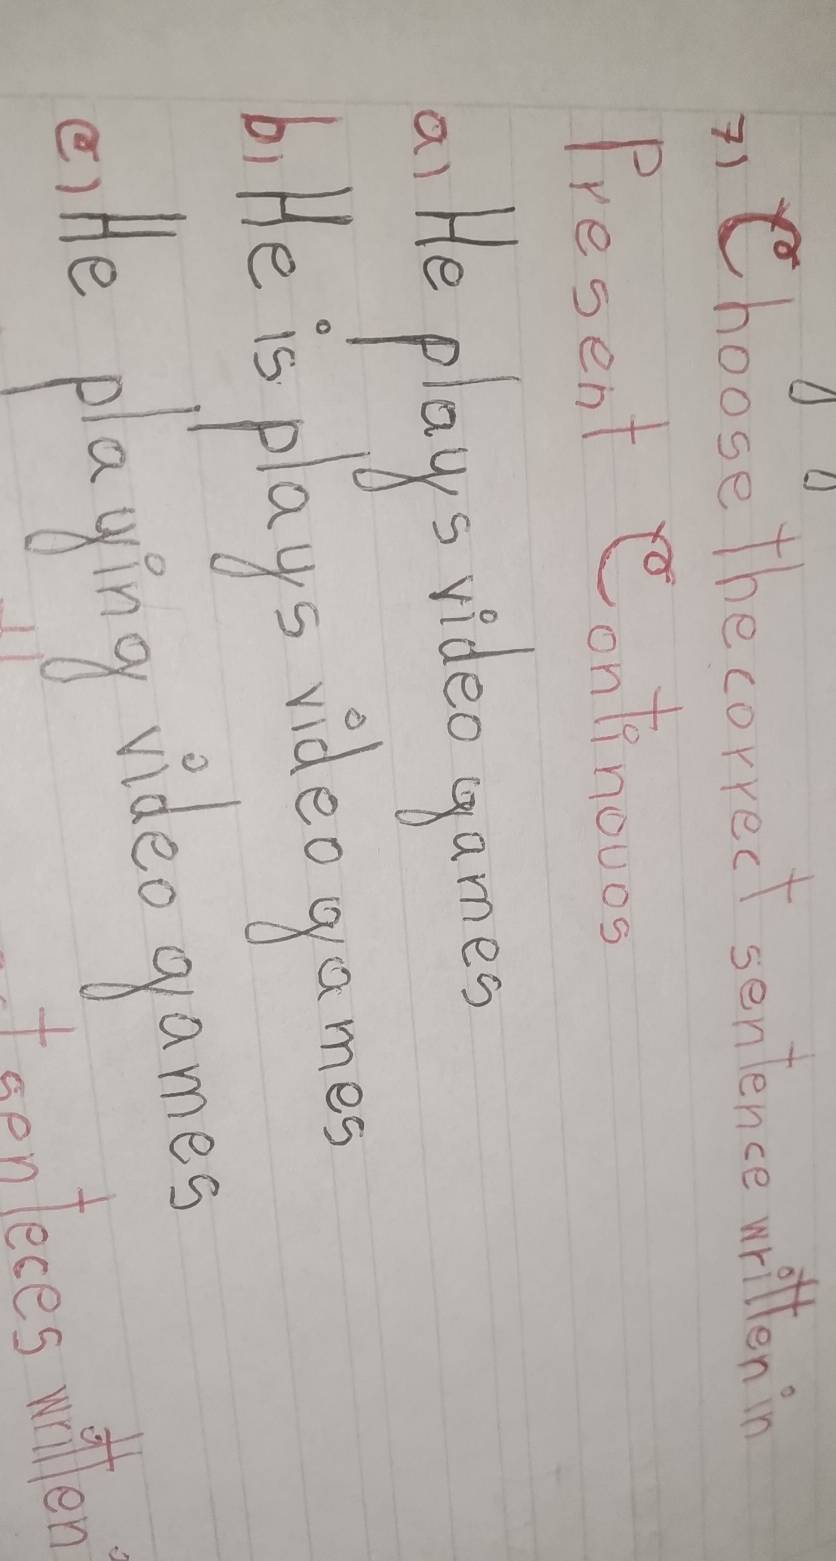 7) Choose the correct sentence written in
Present Continous
a) He plays video games
b) He is plays video games
c) He playing video games
senteces written